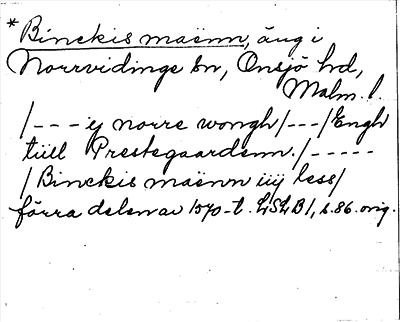 * Binckis maënn, äng i
Norrvidinge sn, Onsjö hd,
Malm. l.
/---ij norre wongh/---/Engh
tiill Prestegaardenn./-----
/Binckis maënn iiij less/
förra delen av 1570-t. LSLB 1, s. 86. orig.